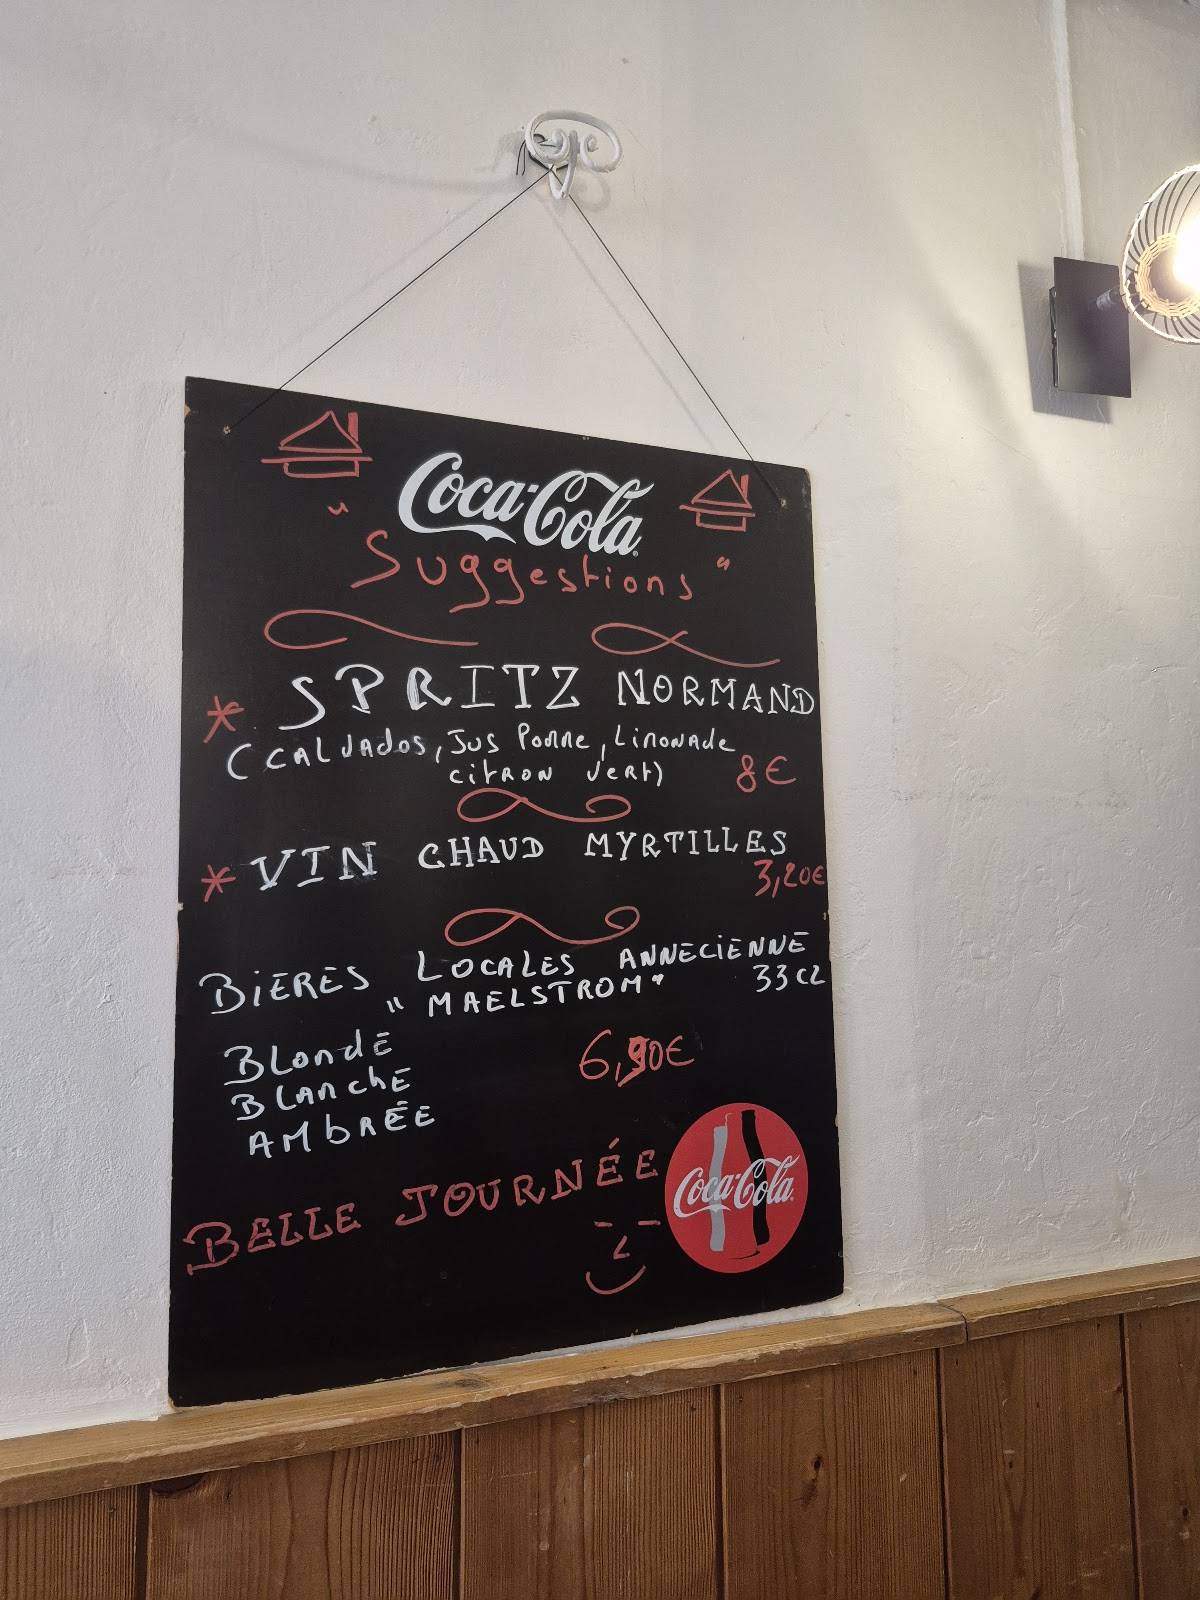 Coca-Cola
"Suggestions"
* SPRITZ NORMAND
(CCALVADOS, JUS POMME, LIMONADE
CITRON VERT) 8€
* VIN CHAUD MYRTILLES
3,20€
BIERES LOCALES ANNECIENNE
"MAELSTROM" 33 CL
BLONDE
6,90€
BLANCHE
AMBRÉE
BELLE JOURNÉE
Coca-Cola